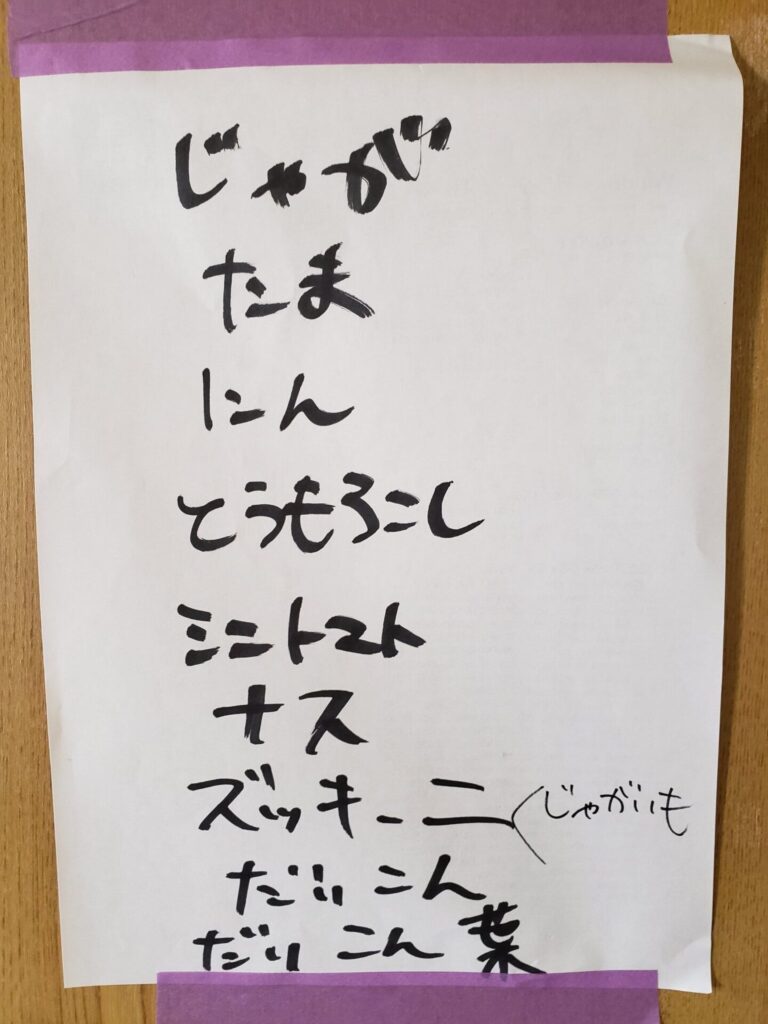 じゃが
たま
にん
とうもろこし
ミニトマト
ナス
ズッキーニ
じゃがいも
だいこん
だいこん葉